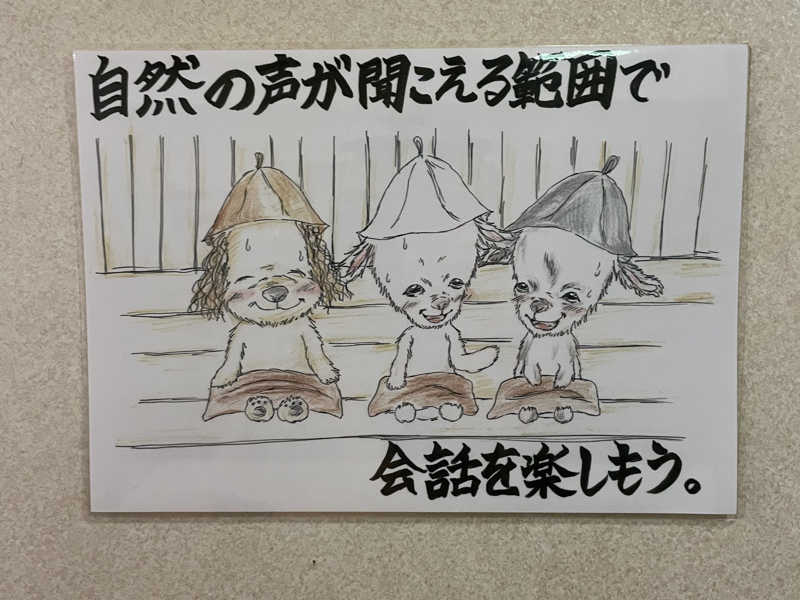 自然の声が聞こえる範囲で
会話を楽しもう。